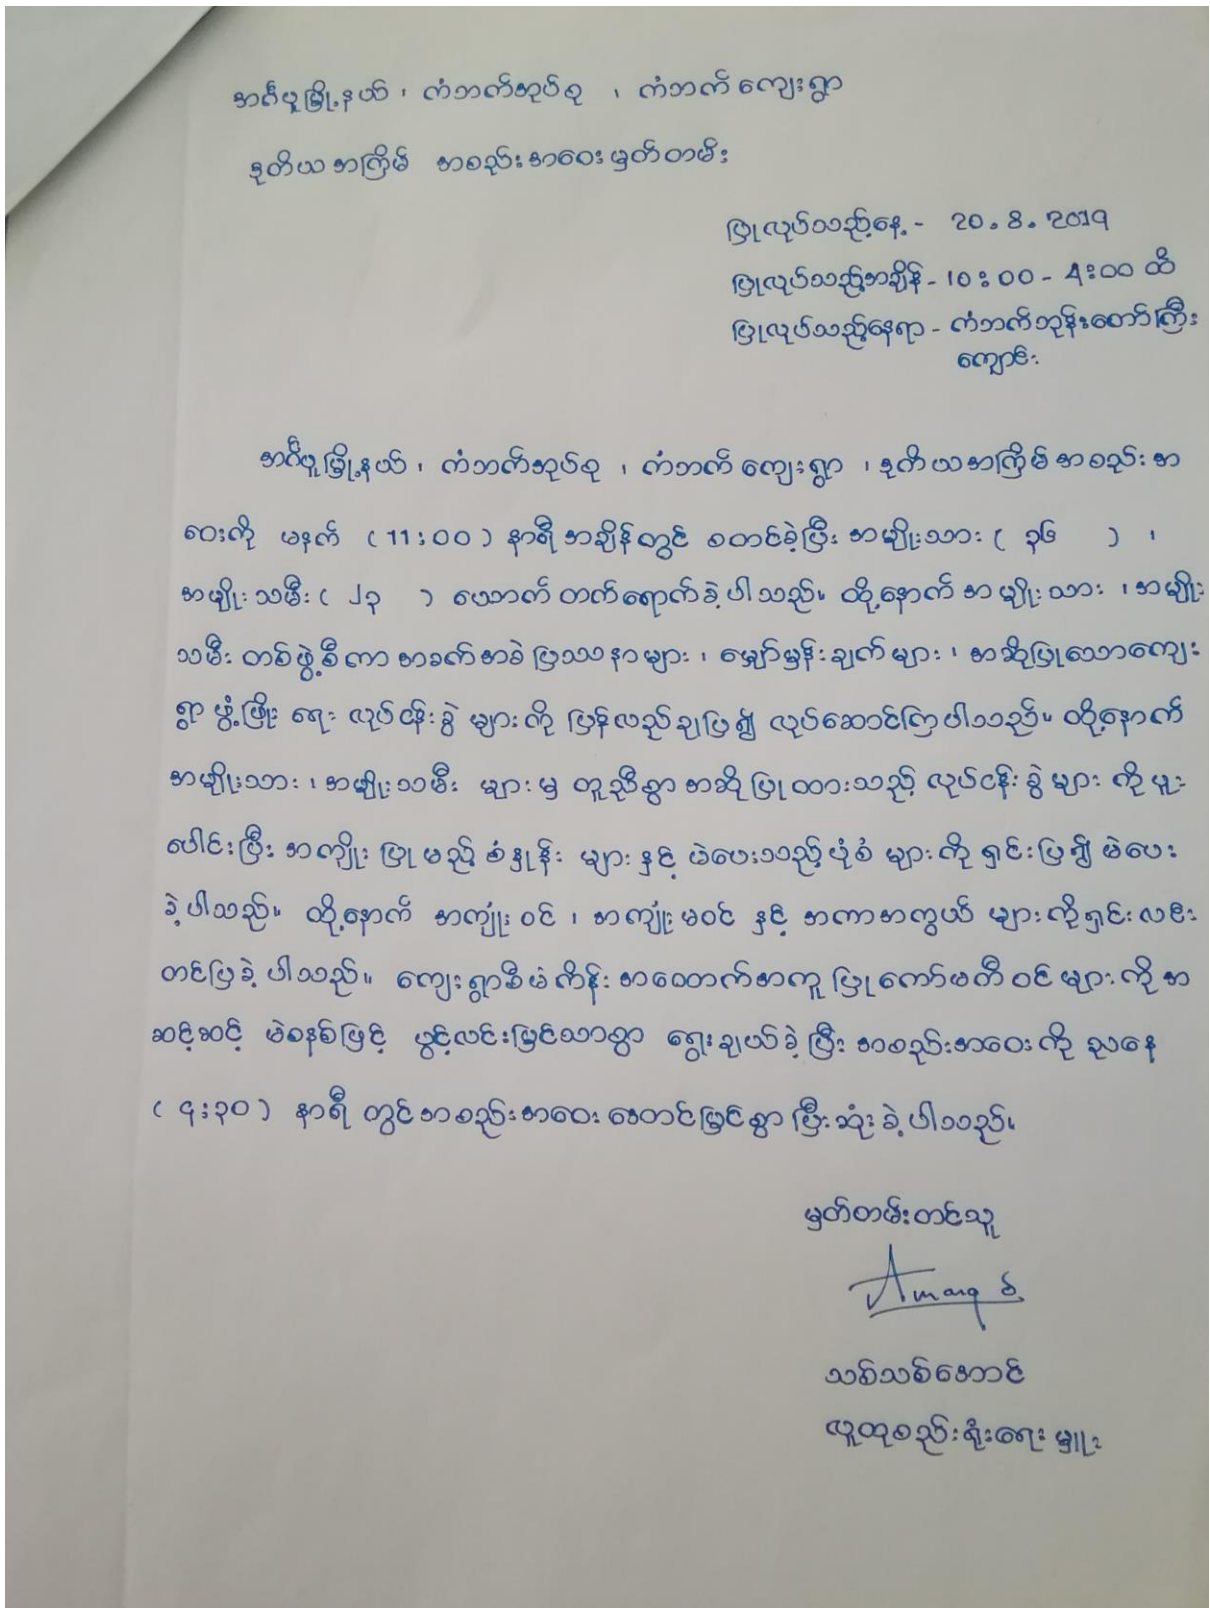 အင်္ဂပူမြို့နယ်၊ ကံဘက်အုပ်စု ၊ ကံဘက်ကျေးရွာ
ဒုတိယအကြိမ် အစည်းအဝေးမှတ်တမ်း
ပြုလုပ်သည့်နေ့ - 20.8.2019
ပြုလုပ်သည့်အချိန် - 10:00 - 4:00 ထိ
ပြုလုပ်သည့်နေရာ - ကံဘက်ဘုန်းတော်ကြီး
ကျောင်း
အင်္ဂပူမြို့နယ်၊ ကံဘက်အုပ်စု ၊ ကံဘက်ကျေးရွာ ၊ ဒုတိယအကြိမ်အစည်းအ
ဝေးကို မနက် (11:00) နာရီအချိန်တွင် စတင်ခဲ့ပြီး အမျိုးသား ( ၃၆ ) ၊
အမျိုးသမီး ( ၂၃ ) ယောက်တက်ရောက်ခဲ့ပါသည်။ ထို့နောက်အမျိုးသား ၊ အမျိုး
သမီး တစ်ဖွဲ့စီကာ အခက်အခဲပြဿနာများ ၊ မျှော်မှန်းချက်များ ၊ အဆိုပြုသောကျေး
ရွာဖွံ့ဖြိုးရေး လုပ်ငန်းခွဲများကို ပြန်လည်ချပြ၍ လုပ်ဆောင်ကြပါသည်။ ထို့နောက်
အမျိုးသား ၊ အမျိုးသမီး များမှ တူညီစွာအဆိုပြုထားသည့်လုပ်ငန်းခွဲများကိုပူး
ပေါင်းပြီး အကျိုးပြုမည့်စံနှုန်းများနှင့် မဲပေးသည့်ပုံစံများကိုရှင်းပြ၍မဲပေး
ခဲ့ပါသည်။ ထို့နောက် အကျုံးဝင် ၊ အကျုံးမဝင် နှင့် အကာအကွယ်များကိုရှင်းလင်း
တင်ပြခဲ့ပါသည်။ ကျေးရွာစီမံကိန်းအထောက်အကူပြုကော်မတီဝင်များကိုအ
ဆင့်ဆင့် မဲစနစ်ဖြင့် ပွင့်လင်းမြင်သာစွာ ရွေးချယ်ခဲ့ပြီး အစည်းအဝေးကို ညနေ
( ၄:၃၀ ) နာရီတွင်အစည်းအဝေးအောင်မြင်စွာပြီးဆုံးခဲ့ပါသည်။
မှတ်တမ်းတင်သူ
သစ်သစ်အောင်
လူထုစည်းရုံးရေးမှူး